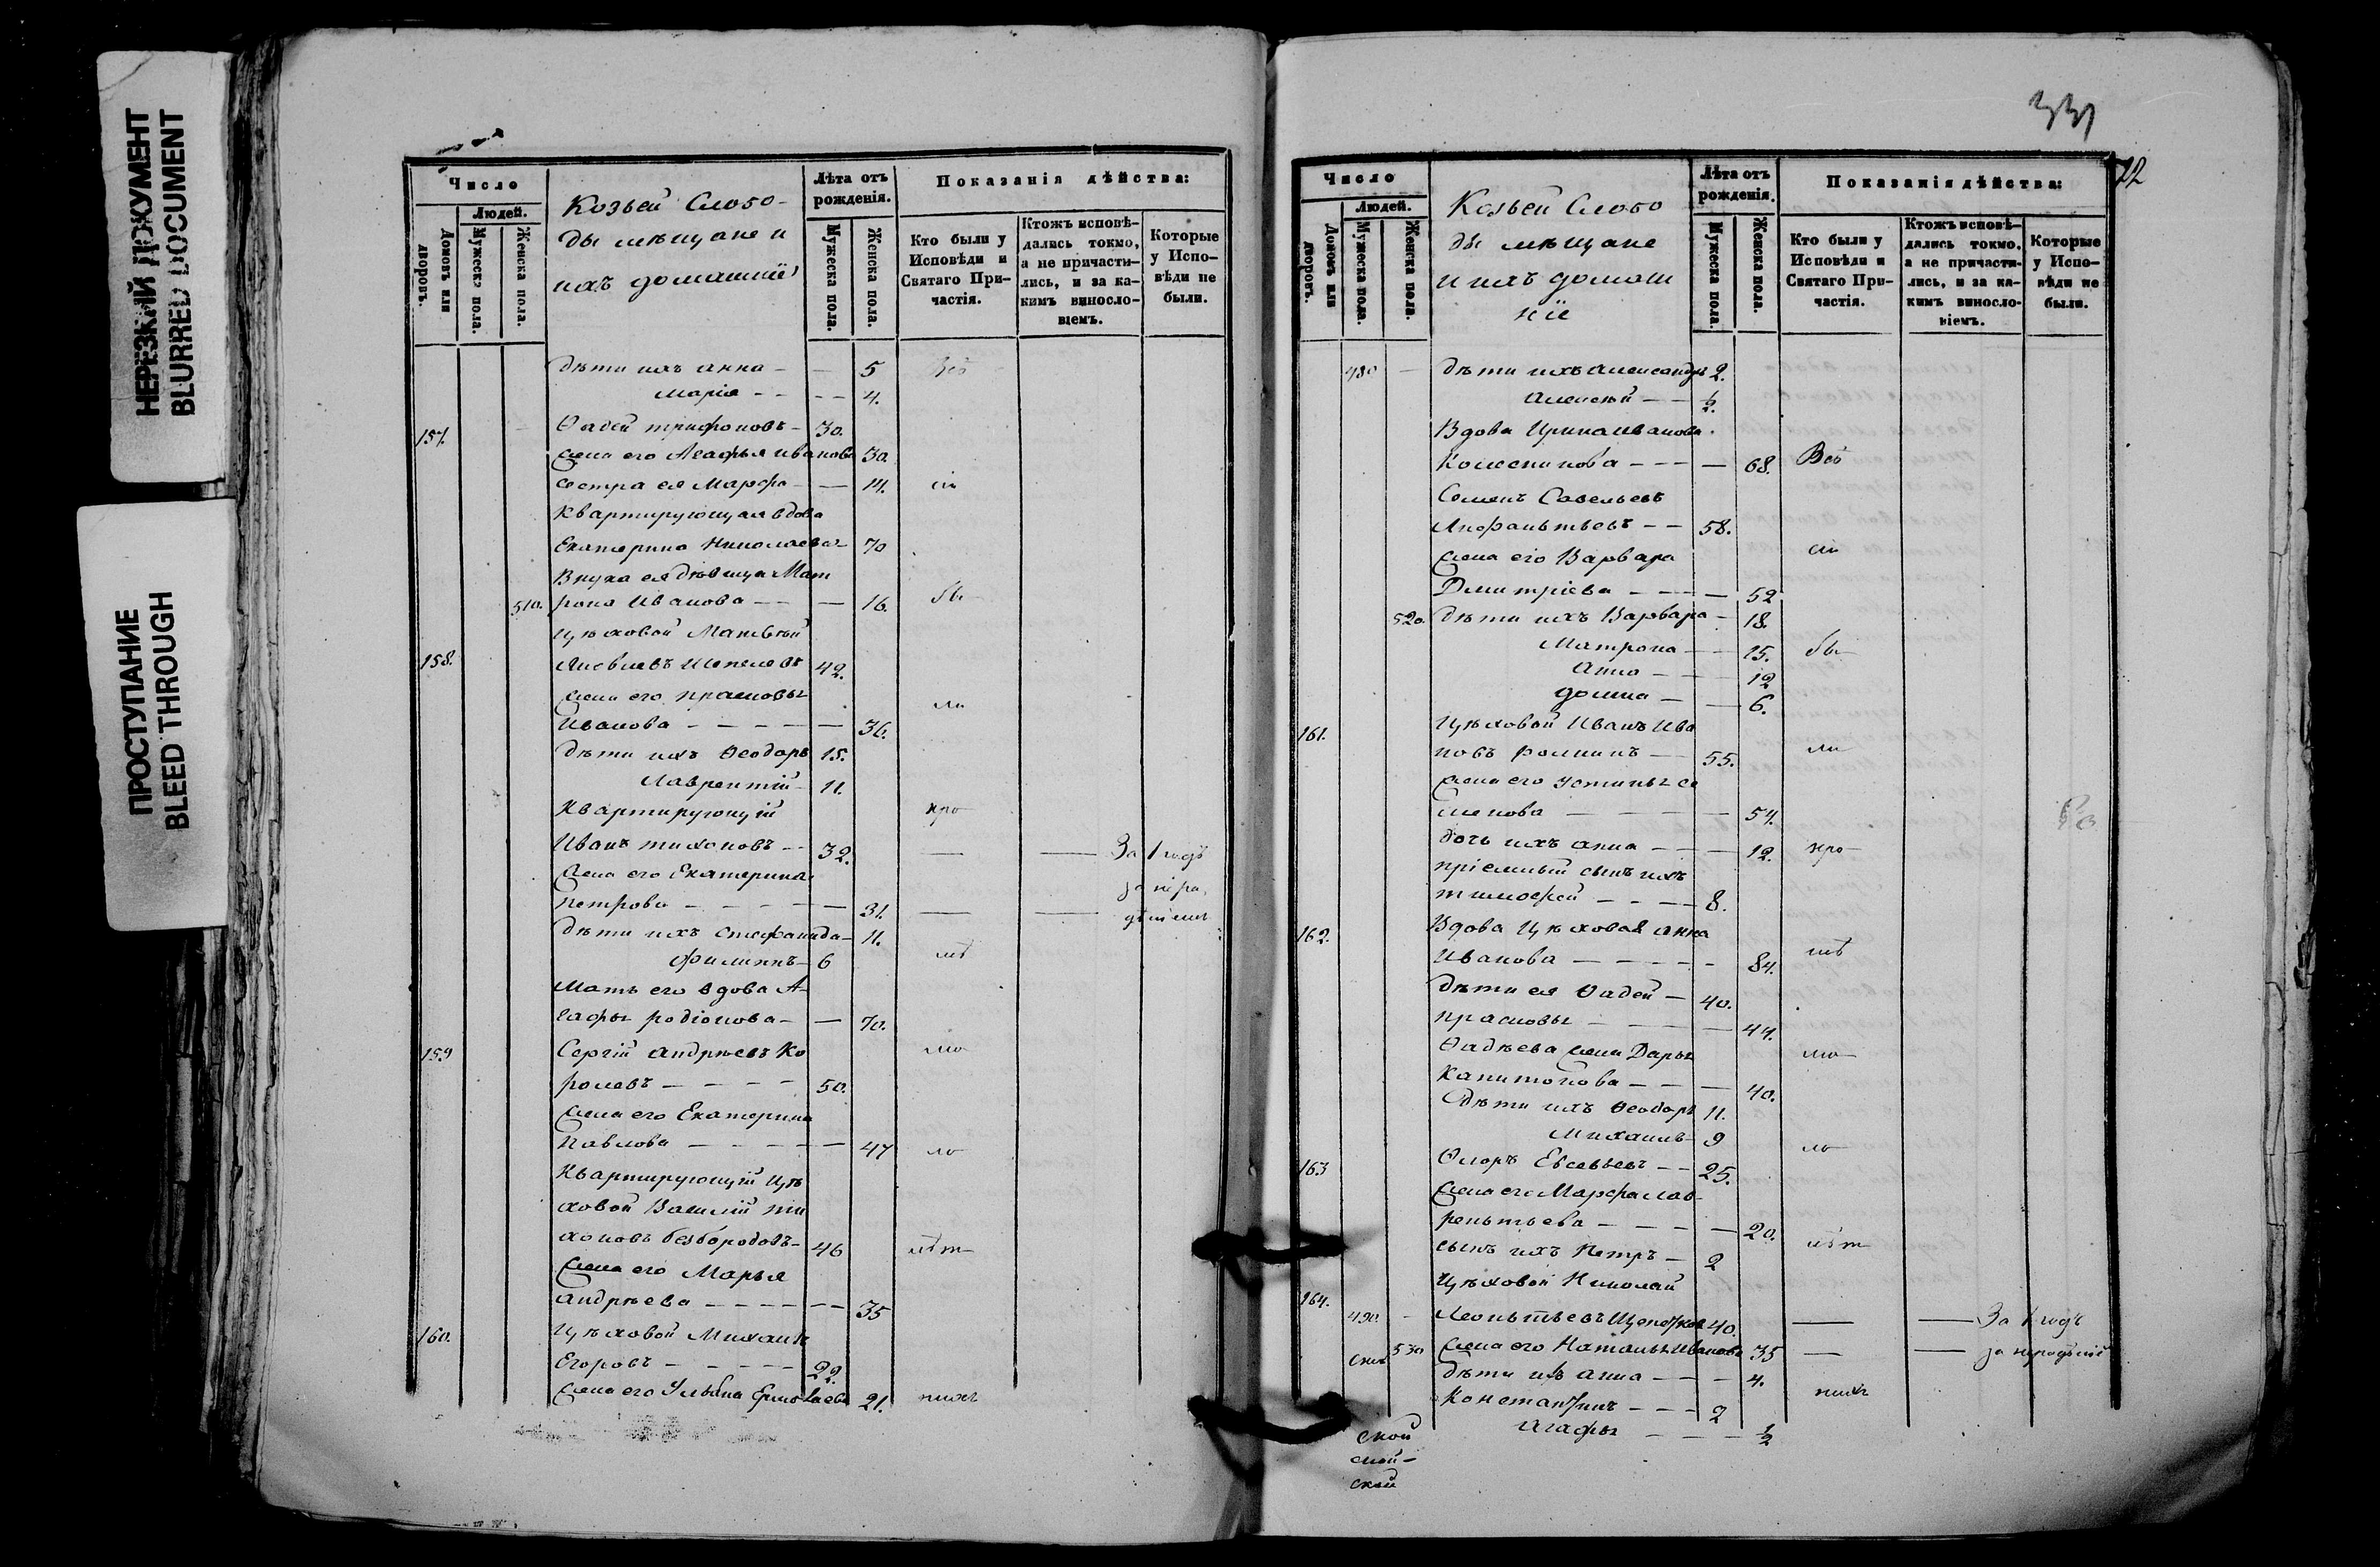 НЕРЕЗКИЙ ДОКУМЕНТ
BLURRED DOCUMENT
ПРОСТУПАНИЕ
BLEED THROUGH
Число
Людей.
Домовъ или дворовъ.
Мужеска пола.
Женска пола.
Козьей Слобо-
ды мѣщане и
ихъ домашніе
Лѣта отъ рожденія.
Мужеска пола.
Женска пола.
Показанія дѣйства:
Кто были у Исповѣди и Святаго При-частія.
Ктожъ исповѣ-дались токмо, а не причасти-лись, и за ка-кимъ винослo-віемъ.
Которые у Испо-вѣди не были.
дѣти ихъ Анна - — 5 Всѣ
Марія - - - - 4.
157. Ѳадей Трифоновъ - 30.
жена его Агафья Иванова 30.
сестра ея Марфа - — 14. сіи
квартирующая вдова
Екатерина Николаева 70
Внука ея дѣвица Мат
510. рона Иванова - - — 16. бы-
цѣховой Матвѣй
158. Яковлевъ Шепелевъ 42.
жена его Прасковья ли
Иванова - — — — — 36.
дѣти ихъ Ѳеодоръ 15.
Лаврентій - 11.
Квартирующій кро
Иванъ Тихоновъ - - 32. — — За 1 годъ
жена его Екатерина за нера,
Петрова - — — — — 31. — — дѣніемъ
дѣти ихъ Стефанида - 11.
Филиппъ - 6 мѣ
Мать его вдова А-
гафья Родіонова - — 70.
159 Сергій Андреевъ Ко мо
ролевъ — — — 50.
жена его Екатерина
Павлова — — — — 47 ло
Квартирующій цѣ
ховой Василій Ти
хоновъ Безбородовъ - 46 лѣт
жена его Марья
Андреева - - - - - - 35
160. Цѣховой Михаилъ
Егоровъ - - - - - 22.
жена его Ульяна Ермолаева 21. нихъ
331
22
Число
Людей.
Домовъ или дворовъ.
Мужеска пола.
Женска пола.
Козьей Слобо
ды мѣщане
и ихъ домаш
ніе
Лѣта отъ рожденія.
Мужеска пола.
Женска пола.
Показанія дѣйства:
Кто были у Исповѣди и Святаго При-частія.
Ктожъ исповѣ-дались токмо, а не причасти-лись, и за ка-кимъ винослo-віемъ.
Которые у Испо-вѣди не были.
480 - дѣти ихъ Александръ 2.
Алексѣй - - ½.
Вдова Ирина Иванова
- - - — 68. Всѣ
Семенъ Савельевъ
- - 58.
жена его Варвара сіи
Дмитріева - - - — 52
520. дѣти ихъ Варвара - 18.
Матрона - - 15. бы-
Анна - - - 12
Домна - — 6.
161. Цѣховой Иванъ Ива
новъ - 55. ли
жена его Устинья Се
менова — — — — 54.
дочь ихъ Анна - - — 12. кро
пріемный сынъ ихъ
Тимофей - - - - 8.
162. Вдова Цѣховая Анна
Иванова — - - - - 84. мѣ
дѣти ея Ѳадей - 40.
Прасковья - - - — 44.
Ѳадѣева жена Дарья мо
Капитонова - - — 40.
дѣти ихъ Ѳеодоръ 11.
Михаилъ - 9 ло
163 Флоръ Евсевьевъ - - 25.
жена его Марфа Лав-
рентьева — - - — 20.
сынъ ихъ Петръ - 2 лѣт
Цѣховой Николай
164. 490. - Леонтьевъ 40. — — За 1 годъ
530 жена его Наталья Иванова 35 — — за нерадѣніе
дѣти ихъ Анна - - - 4. нихъ
Константинъ - - - 2
Агафья - - - ½